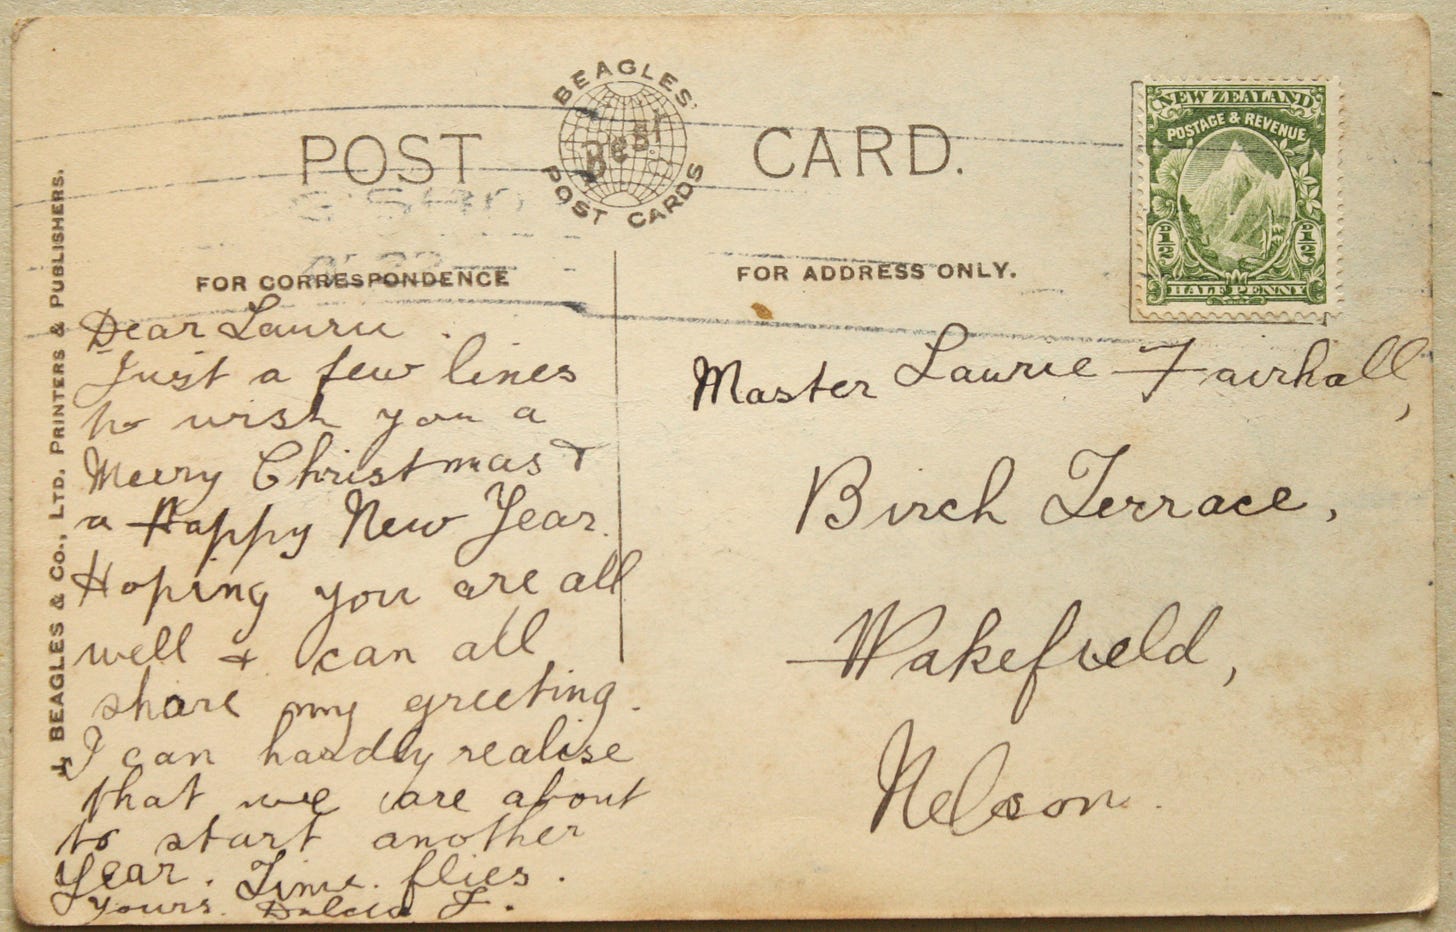 BEAGLES'
Best
POST CARDS
POST CARD.
FOR CORRESPONDENCE
FOR ADDRESS ONLY.
NEW ZEALAND
POSTAGE & REVENUE
D 1/2 D 1/2
HALF PENNY
J. BEAGLES & Co., LTD. PRINTERS & PUBLISHERS.
Dear Laurie.
Just a few lines
to wish you a
Merry Christmas &
a Happy New Year.
Hoping you are all
well & can all
share my greeting.
I can hardly realise
that we are about
to start another
year. Time flies.
yours. F.
Master Laurie Fairhall,
Birch Terrace,
Wakefield,
Nelson.